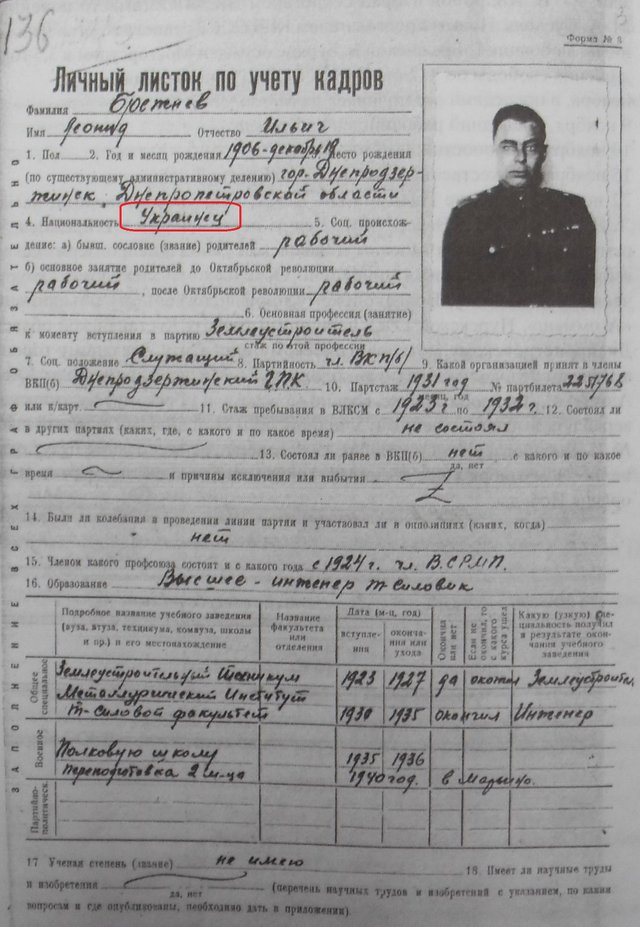 136
3
Форма № 3
Личный листок по учету кадров
Фамилия Брежнев
Имя Леонид Отчество Ильич
1. Пол 2. Год и месяц рождения 1906-декабрь 19 3. Место рождения
(по существующему административному делению) гор. Днепродзер-
жинск, Днепропетровской области
4. Национальность Украинец 5. Соц. происхож-
дение: а) бывш. сословие (звание) родителей рабочий
б) основное занятие родителей до Октябрьской революции
рабочий, после Октябрьской революции рабочий
6. Основная профессия (занятие)
к моменту вступления в партию Землеустроитель
стаж по этой профессии
7. Соц. положение Служащий 8. Партийность чл. ВКП(б) 9. Какой организацией принят в члены
ВКП(б) Днепродзержинский ГПК 10. Партстаж 1931 год № партбилета 2251768
месяц, год
или к/карт. 11. Стаж пребывания в ВЛКСМ с 1923 г по 1932 г. 12. Состоял ли
в других партиях (каких, где, с какого и по какое время) не состоял
13. Состоял ли ранее в ВКП(б) нет с какого и по какое
да, нет
время и причины исключения или выбытия Z
14. Были ли колебания в проведении линии партии и участвовал ли в оппозициях (каких, когда)
нет
15. Членом какого профсоюза состоит и с какого года с 1924 г. чл. В.СРМП.
16. Образование Высшее - инженер т-силовик
Подробное название учебного заведения (вуза, втуза, техникума, комвуза, школы и пр.) и его местонахождение
Название факультета или отделения
Дата (м-ц, год)
вступле-ния
оконча-ния или ухода
Окончил или нет
Если не окончил, то с какого курса ушел
Какую (узкую) спе-циальность получил в результате окон-чания учебного заведения
Общее специальное
Землеустроительный Техникум 1923 1927 да окончил Землеустроител.
Металлургический Институт
т-силовой факультет 1930 1935 окончил Инженер
Военное
Полковую школу 1935 1936
переподготовка 2 м-ца 1940 год. в
Партийно-политическ.
17 Ученая степень (звание) не имею 18. Имеет ли научные труды
и изобретения (перечень научных трудов и изобретений с указанием, по каким
да, нет
вопросам и где опубликованы, необходимо дать в приложении).
ЗАПОЛНЕНИЕ ВСЕХ ГРАФ ОБЯЗАТЕЛЬНО